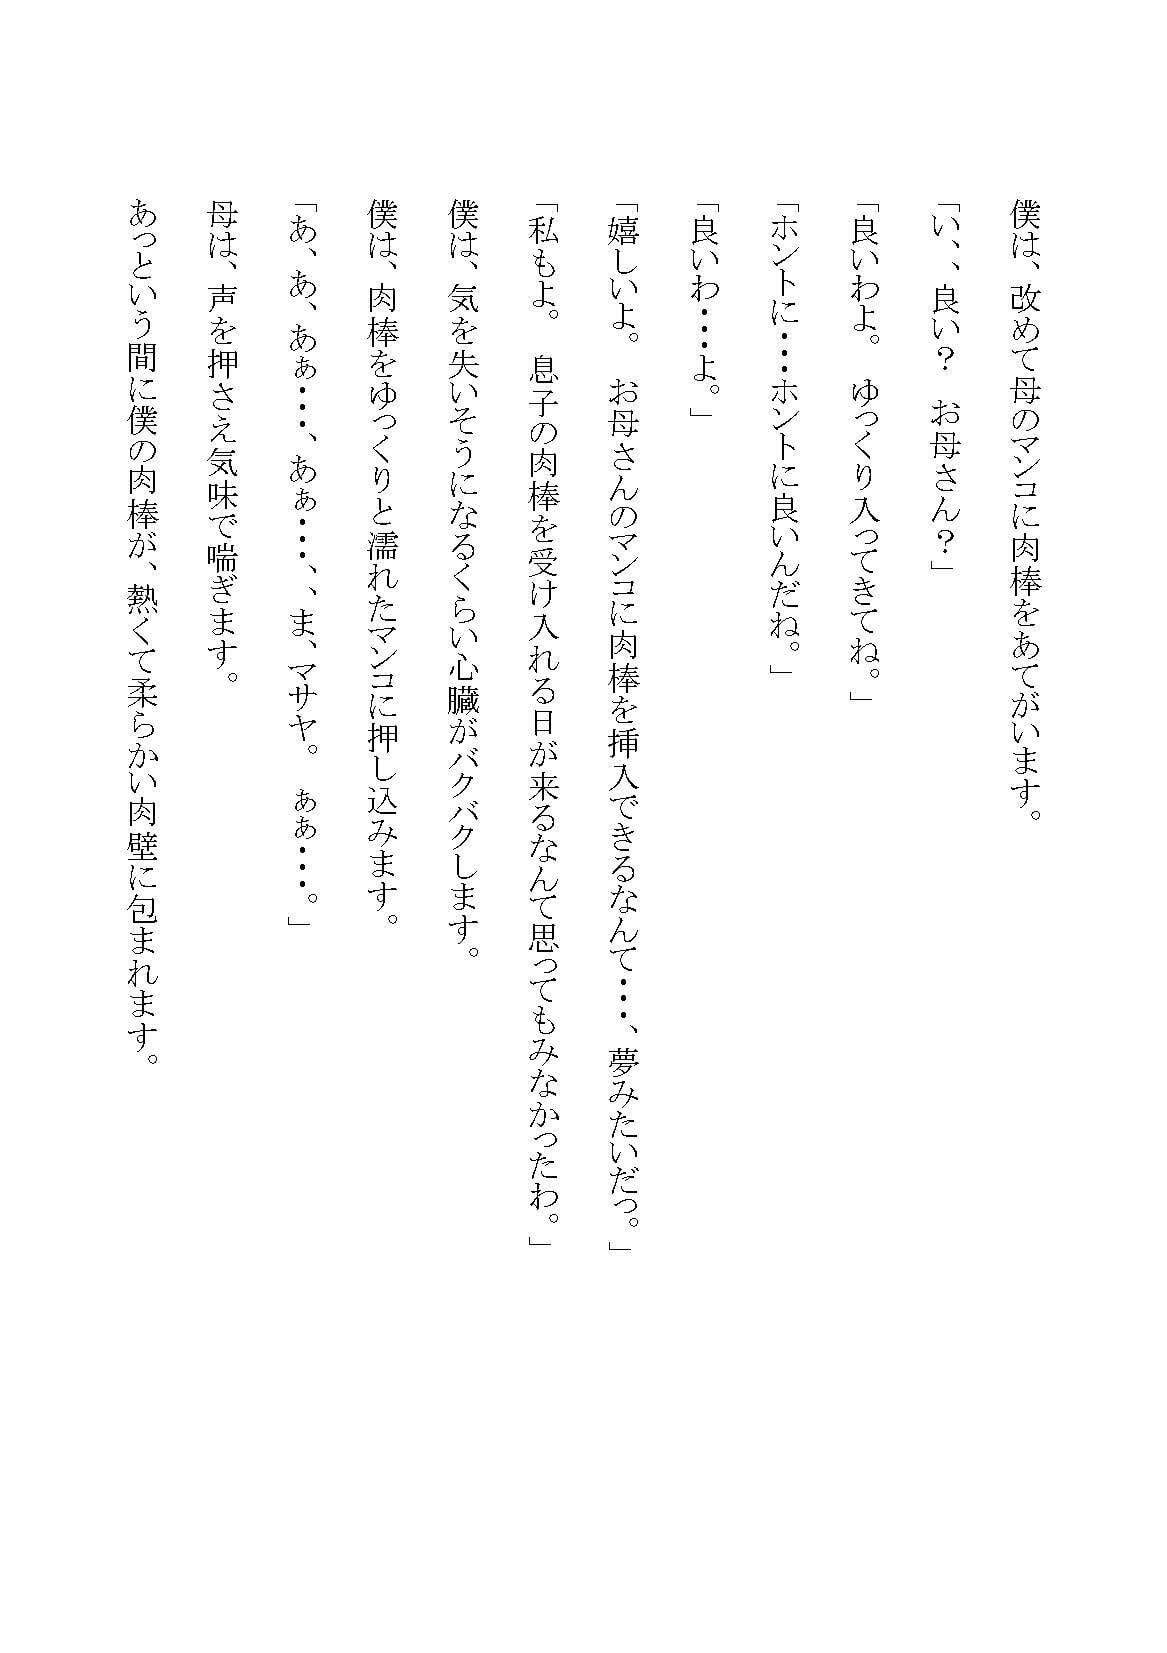 僕は、改めて母のマンコに肉棒をあてがいます。
「い、、良い？　お母さん？」
「良いわよ。　ゆっくり入ってきてね。」
「ホントに・・・ホントに良いんだね。」
「良いわ・・・よ。」
「嬉しいよ。　お母さんのマンコに肉棒を挿入できるなんて・・・、夢みたいだっ。」
「私もよ。　息子の肉棒を受け入れる日が来るなんて思ってもみなかったわ。」
僕は、気を失いそうになるくらい心臓がバクバクします。
僕は、肉棒をゆっくりと濡れたマンコに押し込みます。
「あ、あ、あぁ・・・、あぁ・・・、、ま、マサヤ。　ぁぁ・・・。」
母は、声を押さえ気味で喘ぎます。
あっという間に僕の肉棒が、熱くて柔らかい肉壁に包まれます。